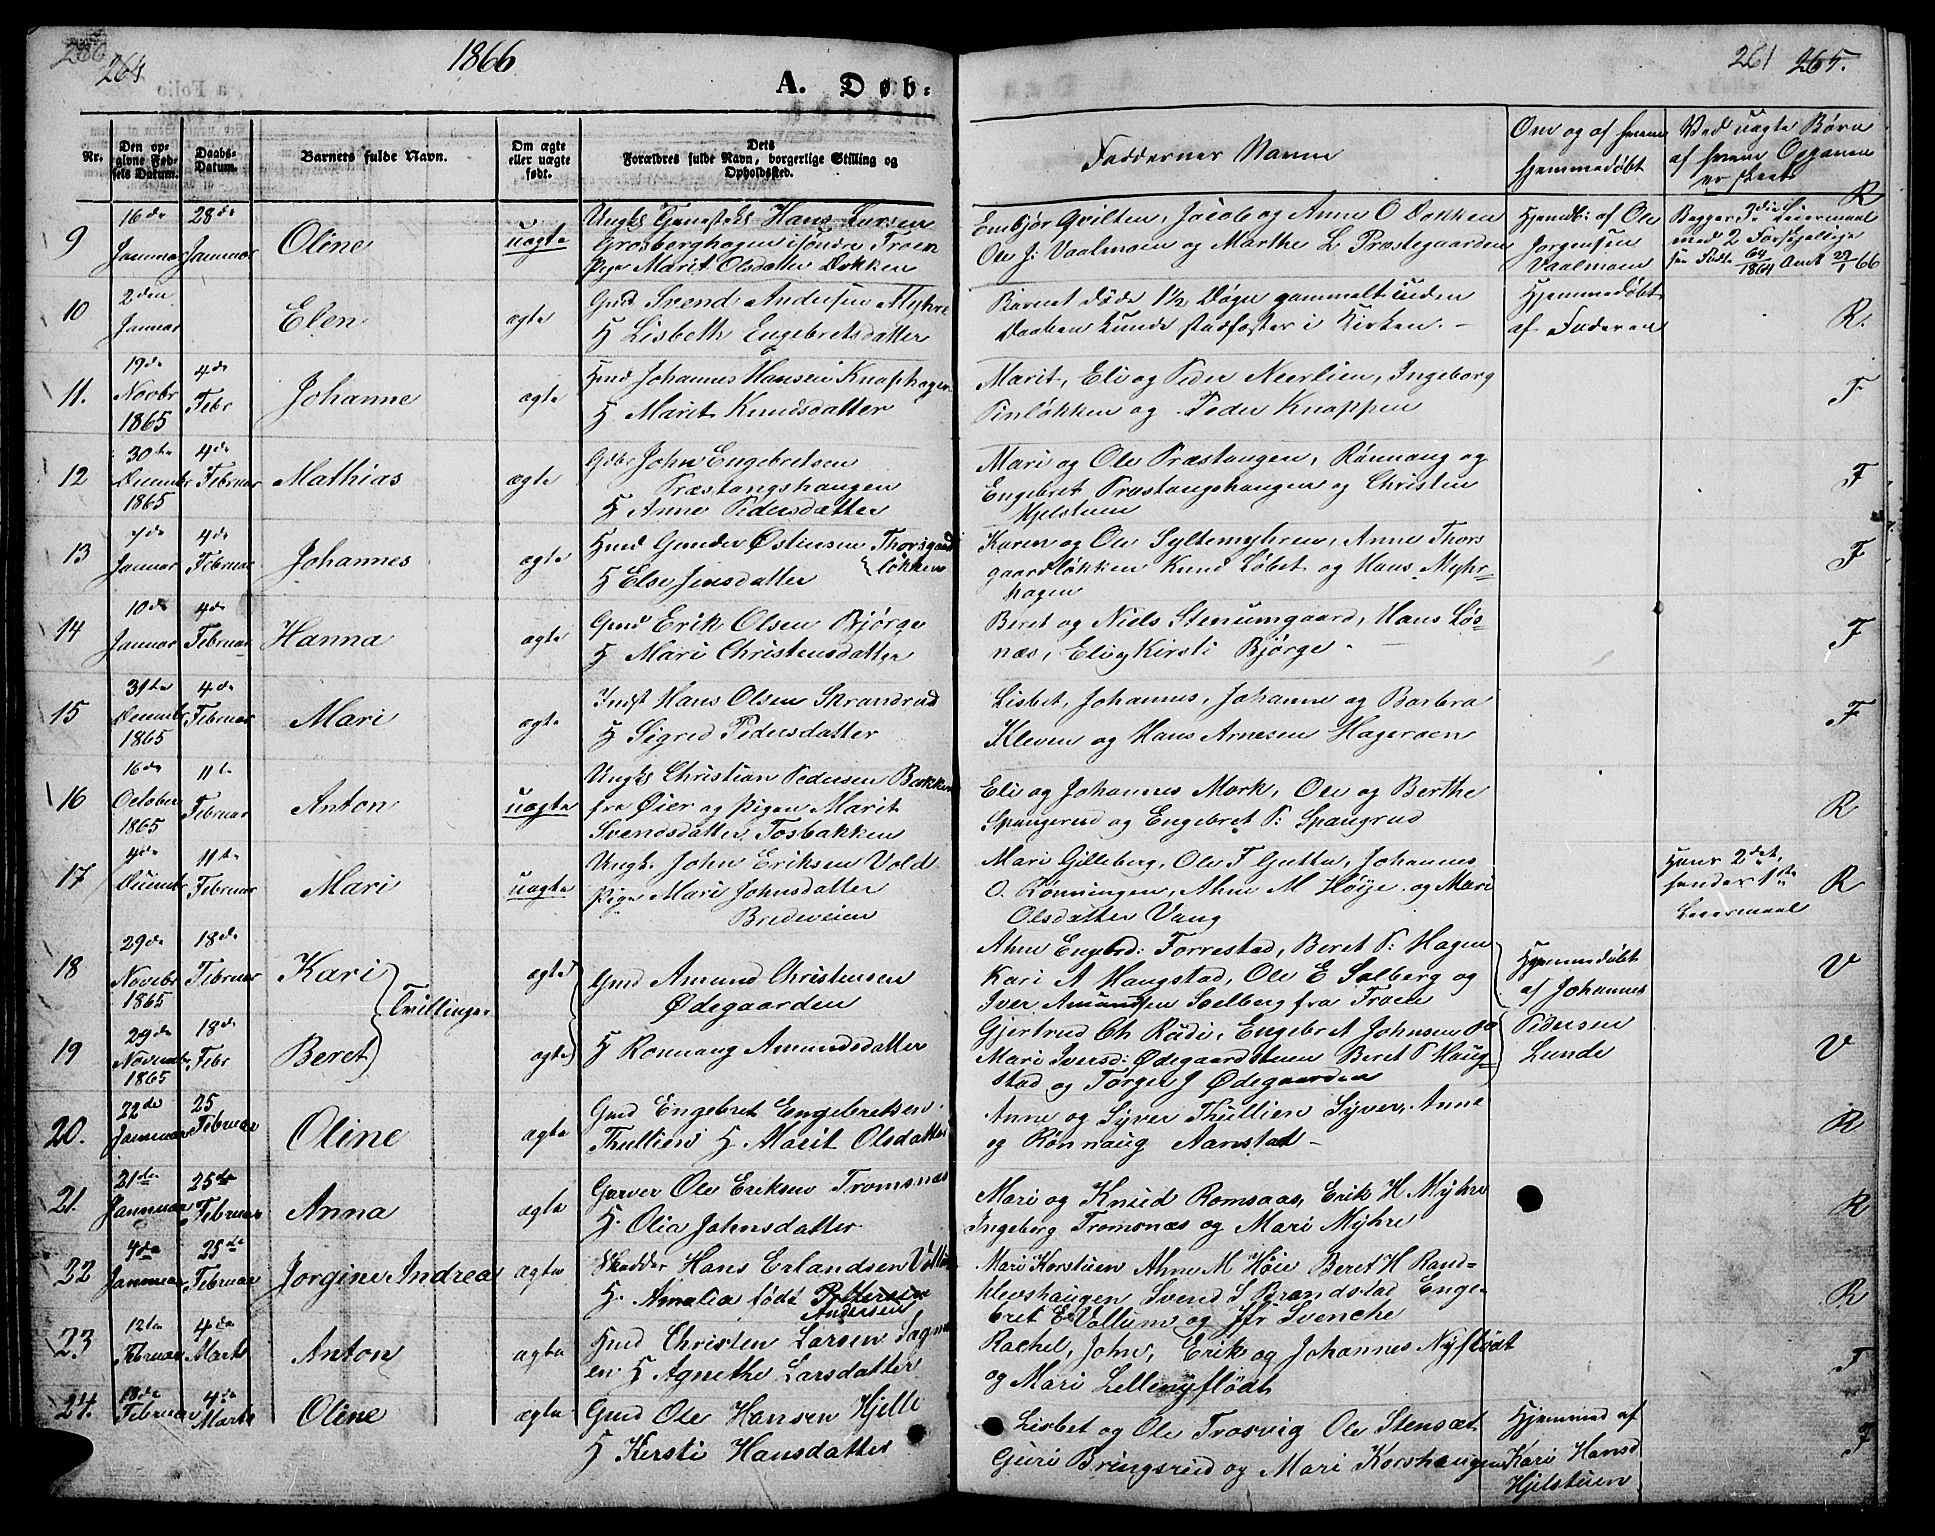 260 264
1866
A. Døb:
261 265.
Nr.
Den op-
givne Føb-
sels Datum.
Daabs-
Datum.
Barnets fulde Navn.
Om ægte
eller uægte
født.
Dets
Forældres fulde Navn, borgerlige Stilling og
Opholdssted.
Faddernes Navne
Om og af hvem
hjemmedøbt
Ved uægte Børn
af hvem Opgaven
er skeet
9
16de
Januar
28de
Januar
Oline
uægte
Ungk Tjenestek Hans Larsen
Grosberghagen i søndre Froen
Pige Marit Olsdatter Dokken
Embjør Qvilten, Jacob og Anne O Dokken
Ole J: Vaalmoen og Marthe L Præstegaarden
Hjemdb: af Ole
Jørgensen
Vaalmoen
Begges 3die Leiermaal
med 2 Forskjelige
R
10
2den
Januar
Elen
ægte
Gmd Svend Andersen Myhre
H Lisbeth Engebretsdatter
Barnet døde 1½ Døgn gammelt inden
Daaben kunde stadfæstes i Kirken. -
Hjemmedøbt
af Faderen
R.
11.
19de
Novbr
1865
4de
Febr
Johanne
ægte
Hmd Johannes Hansen Knaphagen
H Marit Knudsdatter
Marit, Eli og Peder Neerlien, Ingeborg
Pinløkken og Peder Knappen
F
12
30te
Decembr
1865
4de
Februar
Mathias
ægte
Gdbr John Engebretsen
Præstangshaugen
H Anne Pedersdatter
Mari og Ole Præstangen, Rønnaug og
Engebret Præstangshaugen og Christen
Hjelstuen
F
13
7de
Januar
4de
Februar
Johannes
ægte
Hmd Gunder Østensen Thorsgaard
løkken
H Else Jensdatter
Karen og Ole Syltemyhren, Anne Thors
gaardløkken Knud Løbet og Hans Myhr-
hagen
F
14
10de
Januar
4de
Februar
Hanna
ægte
Gmd Erik Olsen Bjørge
H Mari Christensdatter
Beret og Niels Stenumgaard, Hans Løs-
næs, Eli og Kirsti Bjørge. -
F
15
31te
Decembr
1865
4de
Februar
Mari
ægte
Indst Hans Olsen Skrandrud
H Sigred Pedersdatter
Lisbet, Johannes, Johanne og Barbra
Kleven og Hans Arnesen Hageroen
F
16
16de
October
1865
11te
Februar
Anton
uægte
Ungk Christian Pedersen Bakken
fra Øier og Pigen Marit
Svendsdatter Tosbakken
Eli og Johannes Mork, Ole og Berthe
Spangerud og Engebret P: Spangrud
R
17
4de
Decembr
11te
Februar
Mari
uægte
Ungk. John Eriksen Vold
Pige Mari Johnsdatter
Bredeveien
Mari Gilleberg, Ole T Gutta, Johannes
O. Rønningen, Ahne M Høye og Mari
Olsdatter Vang
Hans 2det,
hendes 1ste
Leiermaal
R
18
29de
Novebr
1865
18de
Februar
Kari
ægte
Gmd Amund Christensen
Ødegaarden
Ahne Engbrd: Forrestad, Beret P: Hagen
Kari A Haugstad, Ole E Solberg og
Iver Amundsen Solberg fra Froen
Hjemmedøbt
af Johannes
V
Tvillinger
19
29de
Novembr
1865
18de
Febr
Beret
ægte
H Rønnaug Amundsdatter
Gjertrud Ch Rudi, Engebret Johnsen
Mari Iversd: Ødegaardstuen Beret P Haug-
stad og Torger J Ødegaarden
Pedersen
Lunde
V
20.
22de
Januar
25
Februar
Oline
ægte
Gmd Engebret Engebretsen
Thullien H Marit Olsdatter
Anne og Syver Thullien Syver, Anne
og Rønnaug Aanstad -
R
21.
21de
Januar
25de
Februar
Anna
ægte
Garver Ole Eriksen Tromsnæs
H. Olia Johnsdatter
Mari og Knud Romsaas, Erik H Myhre
Ingeborg Tromsnæs og Mari Myhre
R
22
4de
Januar
25de
Februar
Jørgine Andrea
ægte
Skodder Hans Erlandsen
H. Amalia født Pettersen
Andersen
Mari Korstuen Ahne M Høie Beret H Rand-
klevshaugen Svend S Brandstad Enge-
bret E Vollum og Jfr Svenche
R
23
12te
Februar
4de
Marts
Anton
ægte
Hmd Christen Larsen Sagmo
en H Agnethe Larsdatter
Rachel, John, Erik og Johannes Nyfløt
og Mari Lillenyflødt
F
24.
18de
Februar
4de
Marts
Oline
ægte
Gmd Ole Hansen Hjelle
H Kersti Hansdatter
Lisbet og Ole Trosvig Ole Stensæt
Guri Bringsrud og Mari Korshaugen
Hjemmed af
Kari Hansd
Hjelstuen
F